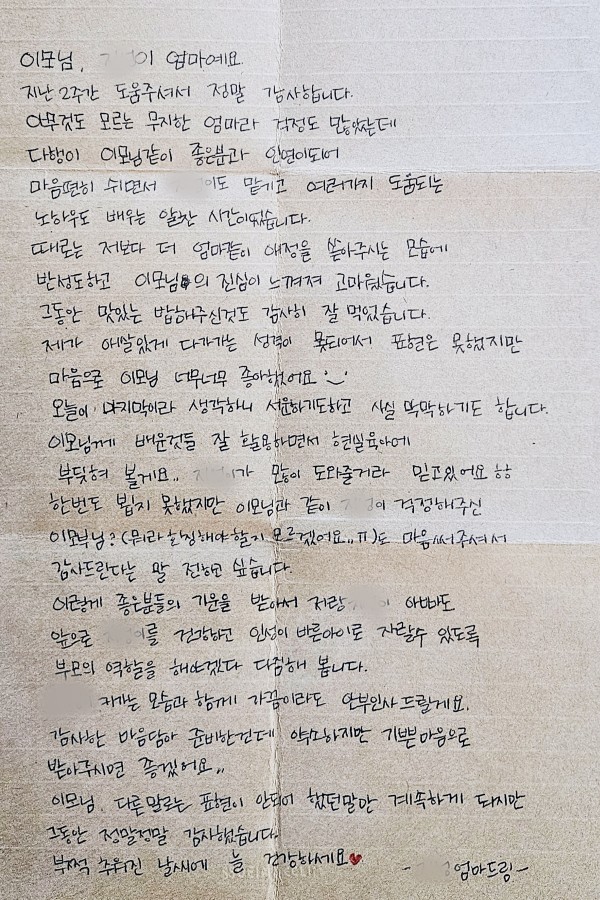 이모님, 이 엄마예요.
지난 2주간 도움주셔서 정말 감사합니다.
아무것도 모르는 무지한 엄마라 걱정도 많았는데
다행이 이모님같이 좋은분과 인연이되어
마음편히 쉬면서 이도 맡기고 여러가지 도움되는
노하우도 배우는 알찬 시간이었습니다.
때로는 저보다 더 엄마같이 애정을 쏟아주시는 모습에
반성도하고 이모님의 진심이 느껴져 고마웠습니다.
그동안 맛있는 밥해주신것도 감사히 잘 먹었습니다.
제가 애살있게 다가가는 성격이 못되어서 표현은 못했지만
마음으로 이모님 너무너무 좋아했어요 '‿'
오늘이 마지막이라 생각하니 서운하기도하고 사실 막막하기도 합니다.
이모님께 배운것들 잘 활용하면서 현실육아에
부딪혀 볼게요.. 가 많이 도와줄거라 믿고있어요 ㅎㅎ
한번도 뵙지 못했지만 이모님과 같이 이 걱정해주신
이모부님? (뭐라 호칭해야할지 모르겠어요..ㅠ)도 마음써주셔서
감사드린다는 말 전하고 싶습니다.
이렇게 좋은분들의 기운을 받아서 저랑 이 아빠도
앞으로 이를 건강하고 인성이 바른아이로 자랄수 있도록
부모의 역할을 해야겠다 다짐해 봅니다.
커가는 모습과 함께 가끔이라도 안부인사 드릴게요.
감사한 마음담아 준비한건데 약소하지만 기쁜마음으로
받아주시면 좋겠어요..
이모님. 다른말로는 표현이 안되어 했던말만 계속하게 되지만
그동안 정말정말 감사했습니다.
부쩍 추워진 날씨에 늘 건강하세요♥
- 엄마드림-